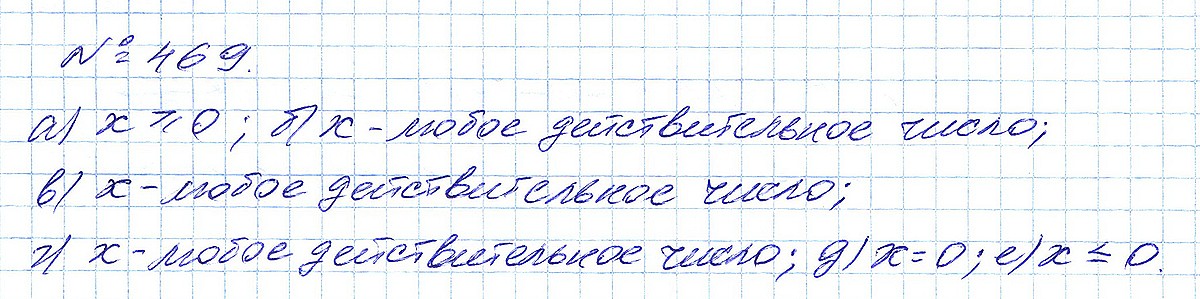 № 469.
а) x ⩾ 0; б) x - любое действительное число;
в) x - любое действительное число;
г) x - любое действительное число; д) x = 0; е) x ≤ 0.